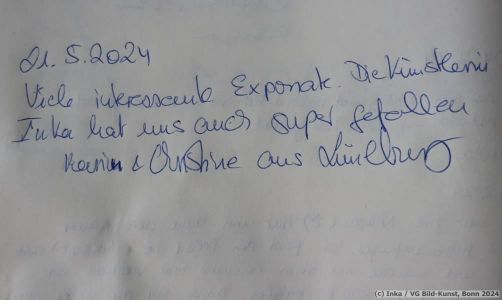 21.5.2024
Viele interessante Exponate. Die Künstlerin
Inka hat uns auch super gefallen
Karin & Christine aus Lüneburg
(c) Inka / VG Bild-Kunst, Bonn 2024